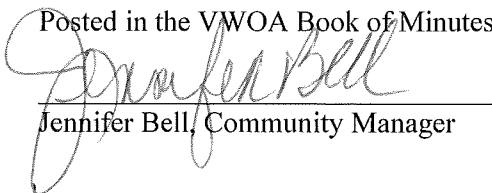 Posted in the VWOA Book of Minutes
Jennifer Bell
Jennifer Bell, Community Manager